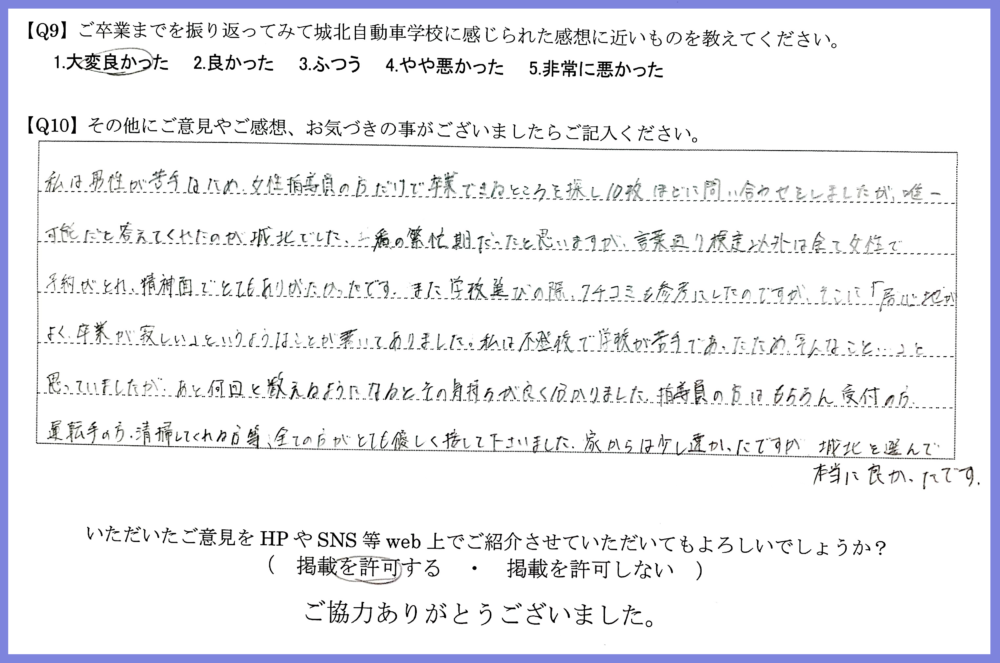 【Q9】ご卒業までを振り返ってみて城北自動車学校に感じられた感想に近いものを教えてください。
1.大変良かった 2.良かった 3.ふつう 4.やや悪かった 5.非常に悪かった
【Q10】その他にご意見やご感想、お気づきの事がございましたらご記入ください。
私は男性が苦手なため、女性指導員の方だけで卒業できるところを探し10校ほどに問い合わせをしましたが、唯一
可能だと答えてくれたのが城北でした。一番の繁忙期だったと思いますが、言葉通り検定以外は全て女性で
予約がとれ、精神面でとてもありがたかったです。また学校選びの際、クチコミも参考にしたのですが、そこに「居心地が
よく、卒業が寂しい」というようなことが書いてありました。私は不登校で学校が苦手であったため、そんなこと…」と
思っていましたが、あと何回と数えるようになるとその気持ちが良く分かりました。指導員の方はもちろん受付の方、
運転手の方、清掃してくれる方等、全ての方がとても優しく接して下さいました。家からは少し遠かったですが 城北を選んで
本当に良かったです。
いただいたご意見をHPやSNS等web上でご紹介させていただいてもよろしいでしょうか？
( 掲載を許可する ・ 掲載を許可しない )
ご協力ありがとうございました。